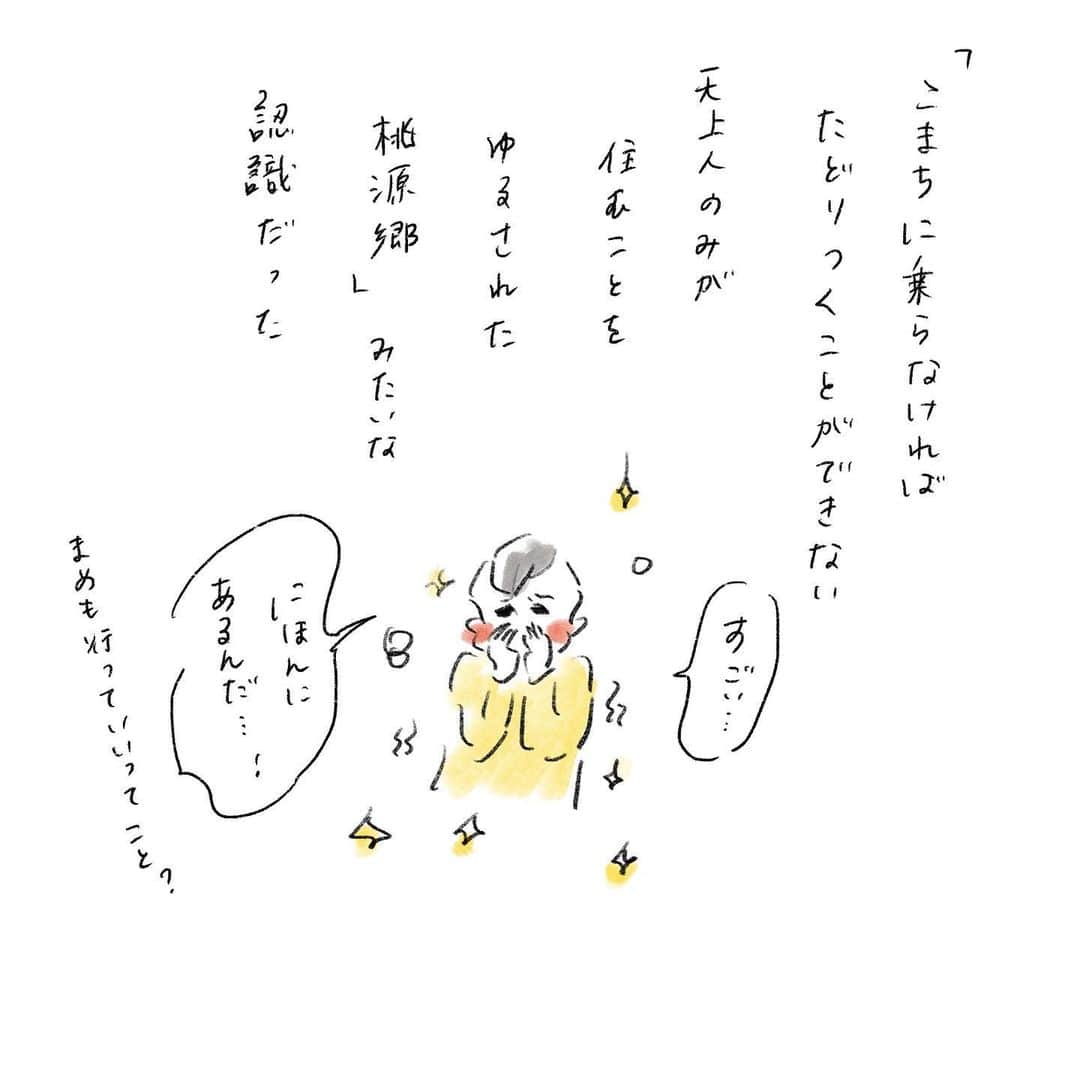 「こまちに乗らなければ
たどりつくことができない
天上人のみが
住むことを
ゆるされた
桃源郷」みたいな
認識だった
すごい…
にほんに
あるんだ…!
まめも行っていいってこと?